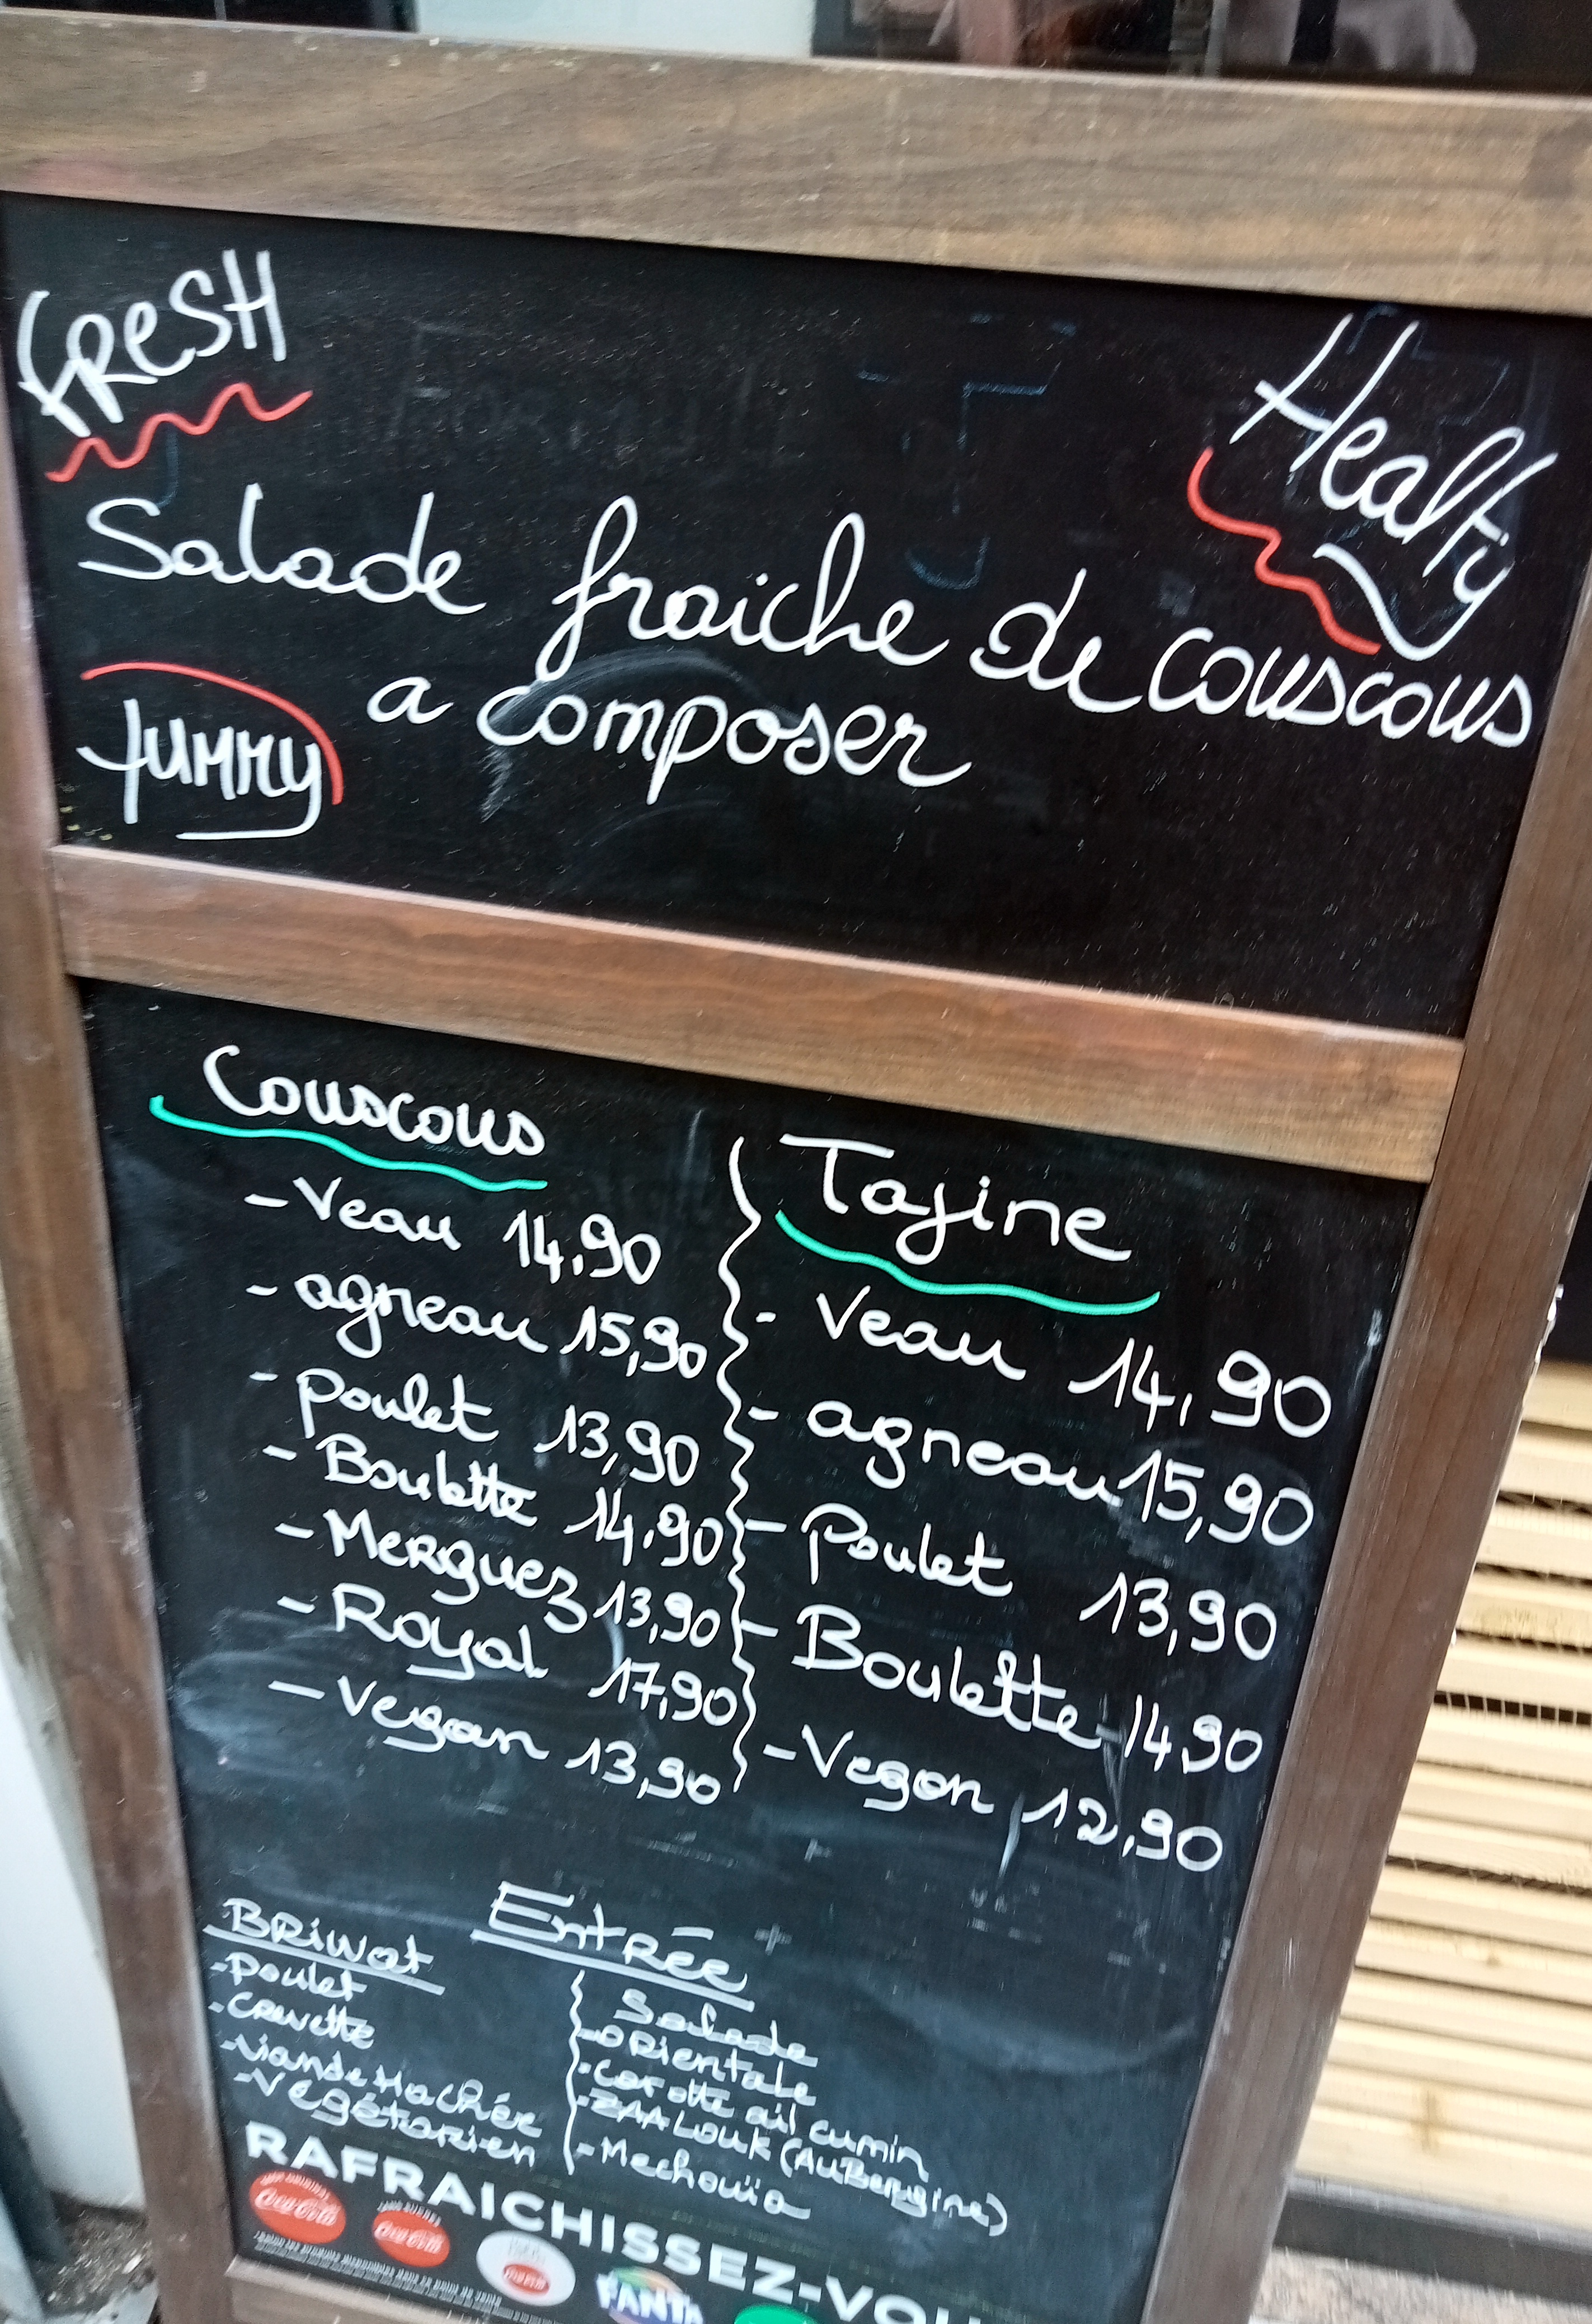 FResH
Healty
Salade fraiche de couscous
a composer
Yummy
Couscous
- Veau 14,90
- agneau 15,90
- poulet 13,90
- Boulette 14,90
- Merguez 13,90
- Royal 17,90
- Vegan 13,90
Tajine
- Veau 14,90
- agneau 15,90
- Poulet 13,90
- Boulette 14,90
- Vegan 12,90
Entrée
BRiwat
- Poulet
- Crevette
- Viande Hachée
- Végétarien
Salade
- ORientale
- Carotte ail cumin
- ZAALOUK (AuBergine)
- Mechouia
RAFRAICHISSEZ-VOU
Coca-Cola
Coca-Cola
Coca-Cola
FANTA